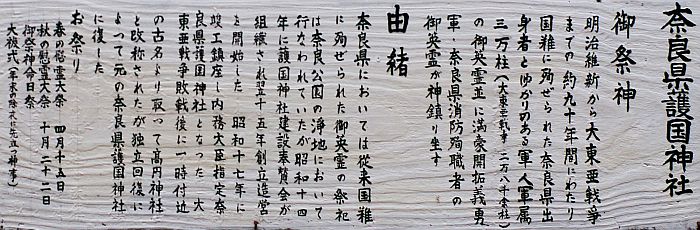 奈良県護国神社
御祭神
明治維新から大東亜戦争
までの約九十年間にわたり
国難に殉ぜられた奈良県出
身者とゆかりのある軍人軍属
三万柱(大東亜戦争二万八千余柱)
の御英霊並に満豪開拓義勇
軍 奈良県消防殉職者の
御英霊が神鎮り坐す
由緒
奈良県においては従来国難
に殉ぜられた御英霊の祭祀
は奈良公園の浄地において
行なわれていたが昭和十四
年に護国神社建設奉賛会が
組織され翌十五年創立造営
を開始した 昭和十七年に
竣工鎮座し内務大臣指定奈
良県護国神社となった 大
東亜戦争敗戦後に一時付近
の古名より取って高円神社
と改称されたが独立回復に
よって元の奈良県護国神社
に復した
お祭り
春の慰霊大祭 四月十五日
秋の慰霊大祭 十月二十二日
御祭神命日祭
大祓式(年末の除夜祭に先立つ神事)